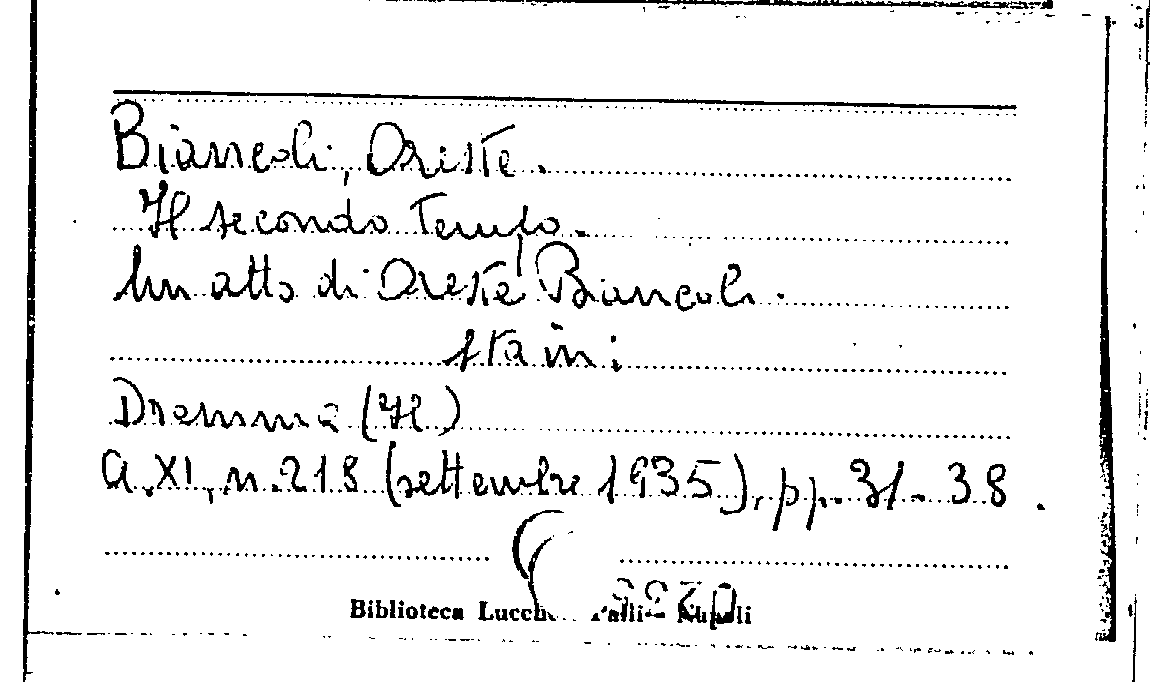 Biancoli, Oreste.
Il secondo tempo.
Un atto di Oreste Biancoli.
sta in:
Dramma (Il)
a. XI, n. 218 (settembre 1935), pp. 31-38.
Biblioteca Napoli